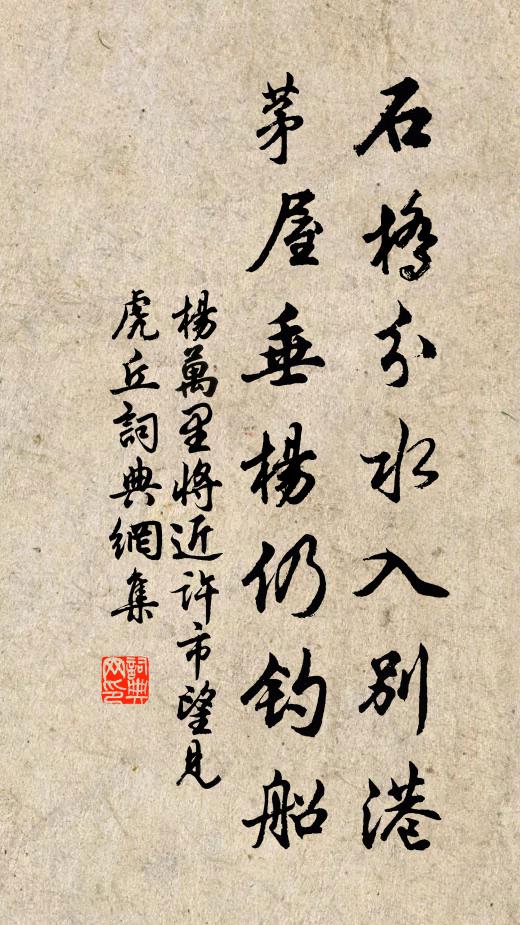 石橋分水入別港
茅屋垂楊仍釣船
楊萬里將近許市望見
虎丘詞典網集
詞典
网印